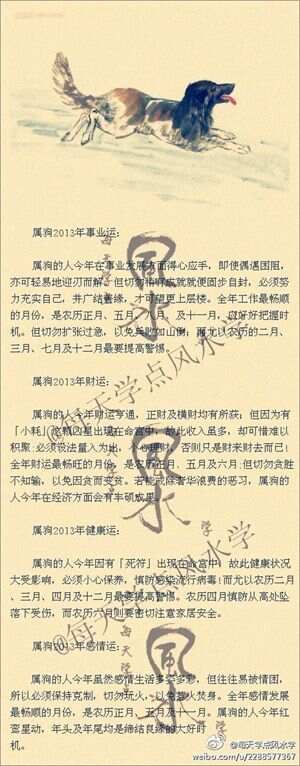 属狗2013年事业运:
属狗的人今年在事业发展方面得心应手，即使偶遇困阻，
亦可轻易地迎刃而解，但切勿恃才成就便固步自封，必须努
力充实自己，并广结善缘，才可望更上层楼。全年工作最畅顺
的月份，是农历正月、五月、八月、及十一月，必好好把握时
机。但切勿扩张过急，以免兵败如山倒；而尤以农历的二月、
三月、七月及十二月最要提高警惕。
属狗2013年财运:
属狗的人今年财运亨通，正财及横财均有所获；但因为有
「小耗」的破财凶星出现在命宫中，故此收入虽多，却可惜难以
积聚;必须设法量入为出，小心理财，否则只是财来财去而已!
全年财运最畅旺的月份，是农历正月、五月及六月;但切勿贪胜
不知输，以免因贪而变贫。若能戒除奢华浪费的恶习，属狗的人
今年在经济方面会有丰硕成果。
属狗2013年健康运:
属狗的人今年因有「死符」出现在命宫中，故此健康状况
大受影响，必须小心保养，慎防感染流行病毒!而尤以农历二月
、三月、四月及十二月最要提高警惕。农历四月慎防从高处坠
落下受伤，而农历六月则要密切注意家居安全。
属狗2013年感情运:
属狗的人今年虽然感情生活多姿多彩，但往往易被情困，
所以必须保持克制，切勿玩火，以免惹火焚身。全年感情发展
最畅顺的月份，是农历正月、五月及十一月。属狗的人今年红
鸾星动，年头及年尾均是缔结良缘的大好时
机。
风水
每天学
@每天学点风水学
风水
@每天学点风水学
每天学
风水
@每天学点风水学
weibo.com/u/2288577367